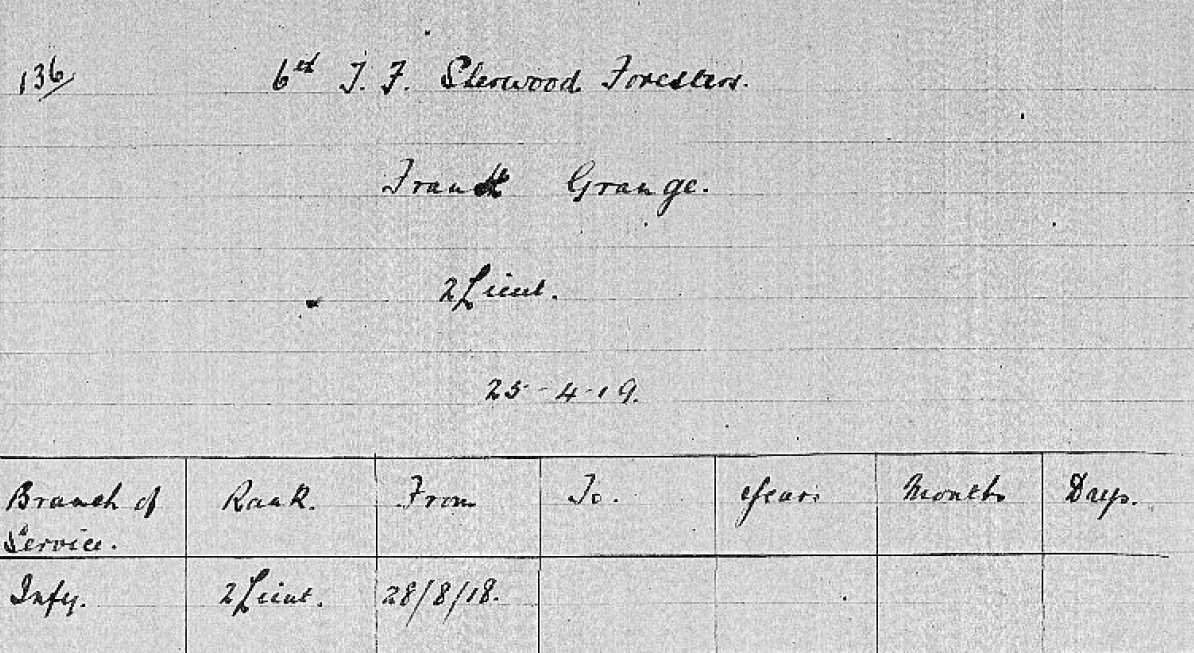 136/
6th T. F. Sherwood Foresters.
Frank Grange.
2Lieut.
25-4-19.
Branch of Service. Rank. From To. Years Months Days.
Infy. 2Lieut. 28/8/18.